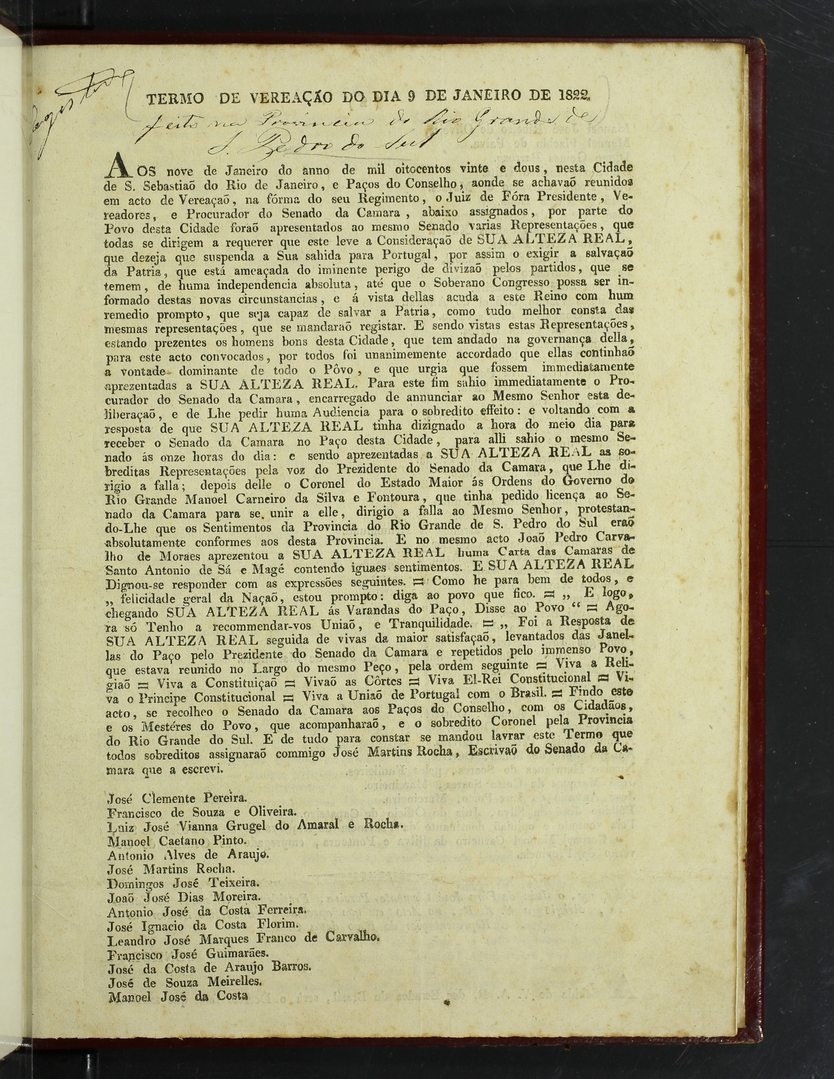 TERMO DE VEREAÇÃO DO DIA 9 DE JANEIRO DE 1822.
feito na Provincia do Rio Grande de
S. Pedro do Sul
AOS nove de Janeiro do anno de mil oitocentos vinte e dous, nesta Cidade
de S. Sebastiaõ do Rio de Janeiro, e Paços do Conselho, aonde se achavaõ reunidos
em acto de Vereaçaõ, na fórma do seu Regimento, o Juiz de Fóra Presidente, Ve-
readores, e Procurador do Senado da Camara, abaixo assignados, por parte do
Povo desta Cidade foraõ apresentados ao mesmo Senado varias Representações, que
todas se dirigem a requerer que este leve a Consideraçaõ de SUA ALTEZA REAL,
que dezeja que suspenda a Sua sahida para Portugal, por assim o exigir a salvaçaõ
da Patria, que está ameaçada do iminente perigo de divizaõ pelos partidos, que se
temem, de huma independencia absoluta, até que o Soberano Congresso possa ser in-
formado destas novas circunstancias, e á vista dellas acuda a este Reino com hum
remedio prompto, que seja capaz de salvar a Patria, como tudo melhor consta das
mesmas representações, que se mandaraõ registar. E sendo vistas estas Representações,
estando prezentes os homens bons desta Cidade, que tem andado na governança della,
para este acto convocados, por todos foi unanimemente accordado que ellas continhaõ
a vontade dominante de todo o Pôvo, e que urgia que fossem immediatamente
aprezentadas a SUA ALTEZA REAL. Para este fim sahio immediatamente o Pro-
curador do Senado da Camara, encarregado de annunciar ao Mesmo Senhor esta de-
liberaçaõ, e de Lhe pedir huma Audiencia para o sobredito effeito: e voltando com a
resposta de que SUA ALTEZA REAL tinha dizignado a hora do meio dia para
receber o Senado da Camara no Paço desta Cidade, para alli sahio o mesmo Se-
nado ás onze horas do dia: e sendo aprezentadas a SUA ALTEZA REAL as so-
breditas Representações pela voz do Prezidente do Senado da Camara, que Lhe di-
rigio a falla; depois delle o Coronel do Estado Maior ás Ordens do Governo do
Rio Grande Manoel Carneiro da Silva e Fontoura, que tinha pedido licença ao Se-
nado da Camara para se unir a elle, dirigio a falla ao Mesmo Senhor, protestan-
do-Lhe que os Sentimentos da Provincia do Rio Grande de S. Pedro do Sul eraõ
absolutamente conformes aos desta Provincia. E no mesmo acto Joaõ Pedro Carva-
lho de Moraes aprezentou a SUA ALTEZA REAL huma Carta das Camaras de
Santo Antonio de Sá e Magé contendo iguaes sentimentos. E SUA ALTEZA REAL
Dignou-se responder com as expressões seguintes. = Como he para bem de todos, e
„ felicidade geral da Naçaõ, estou prompto: diga ao povo que fico. = „ E logo,
chegando SUA ALTEZA REAL ás Varandas do Paço, Disse ao Povo “ = Ago-
ra só Tenho a recommendar-vos Uniaõ, e Tranquilidade. = „ Foi a Resposta de
SUA ALTEZA REAL seguida de vivas da maior satisfaçaõ, levantados das Janel-
las do Paço pelo Prezidente do Senado da Camara e repetidos pelo immenso Povo,
que estava reunido no Largo do mesmo Peço, pela ordem seguinte = Viva a Reli-
giaõ = Viva a Constituiçaõ = Vivaõ as Côrtes = Viva El-Rei Constitucional = Vi-
va o Principe Constitucional = Viva a Uniaõ de Portugal com o Brasil. = Findo este
acto, se recolheo o Senado da Camara aos Paços do Conselho, com os Cidadãos,
e os Mestéres do Povo, que acompanharaõ, e o sobredito Coronel pela Provincia
do Rio Grande do Sul. E de tudo para constar se mandou lavrar este Termo que
todos sobreditos assignaraõ commigo José Martins Rocha, Escrivaõ do Senado da Ca-
mara que a escrevi.
José Clemente Pereira.
Francisco de Souza e Oliveira.
Luiz José Vianna Grugel do Amaral e Rocha.
Manoel Caetano Pinto.
Antonio Alves de Araujo.
José Martins Rocha.
Domingos José Teixeira.
Joaõ José Dias Moreira.
Antonio José da Costa Ferreira.
José Ignacio da Costa Florim.
Leandro José Marques Franco de Carvalho.
Francisco José Guimarães.
José da Costa de Araujo Barros.
José de Souza Meirelles.
Manoel José da Costa